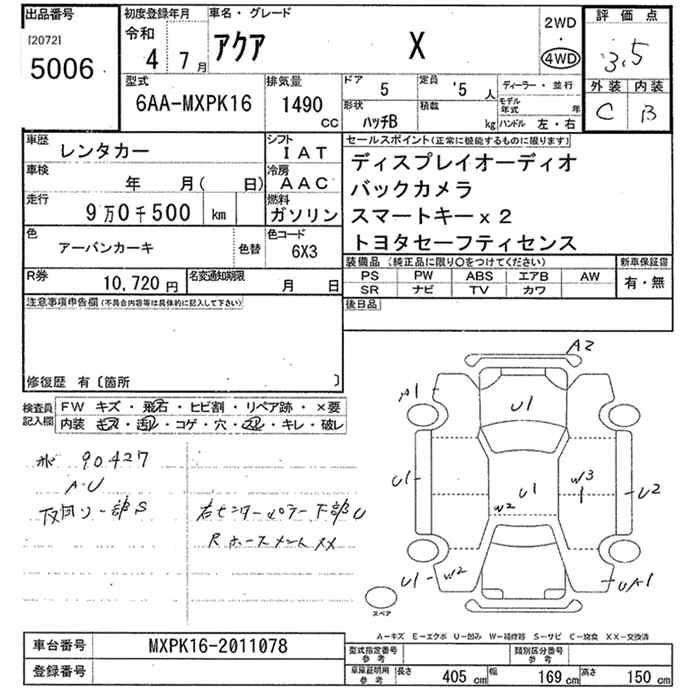 出品番号
[2072]
5006
初度登録年月
令和
4 7月
車名・グレード
アクア X
2WD
・
4WD
評価点
3.5
外装 内装
C B
型式
6AA-MXPK16
排気量
1490
CC
ドア
5
定員
5 人
形状
ハッチB
積載
kg
ディーラー・並行
モデル年式 年
ハンドル 左・右
車歴
レンタカー
シフト
IAT
車検
年 月( 日)
冷房
AAC
走行
9万0千500 km
燃料
ガソリン
色
アーバンカーキ
色替
色コード
6X3
R券
10,720円
名変通知期限
月 日
セールスポイント(正常に機能するものに限ります)
ディスプレイオーディオ
バックカメラ
スマートキーx2
トヨタセーフティセンス
装備品(純正品に限り○をつけてください)
PS PW ABS エアB AW
SR ナビ TV カワ
新車保証書
有・無
後日品
注意事項申告欄(不具合内容等は具体的に記入して下さい)
修復歴 有〔箇所 〕
検査員記入欄
FW キズ・飛石・ヒビ割・リペア跡・×要
内装 キズ・汚レ・コゲ・穴・スレ・キレ・破レ
90427
A.U
右センターピラー下部U
A2
A1
U1
U1
U1
W3
U2
W2
U1
W2
UA1
スペア
A-キズ E-エクボ U-凹み W-補修跡 S-サビ C-腐食 XX-交換済
車台番号
MXPK16-2011078
登録番号
型式指定番号
参考
類別区分番号
参考
車庫証明用
参考
長さ 405 cm 幅 169 cm 高さ 150 cm